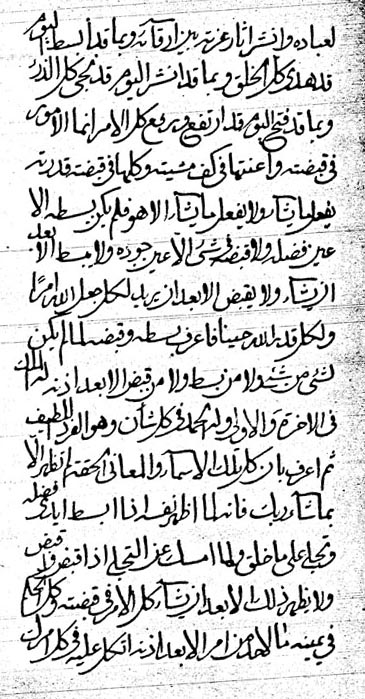 لعباده وانشر اثار عزته بين ارقائه وبما قد ابسط اليوم
قد هدى كل الخلق وبما قد انشر اليوم قد نجى كل الذر
وبما قد فتح اليوم قد ارتفع ويرتفع كل الامر انما الامور
فى قبضته واعنتها فى كف مشيته وكلها فى قبضته قدرته
يفعل ما يشاء ولا يفعل ما يشاء الا هو فلم يكن بسطه الا
عين فضله ولا قبضه فى شئ الا عين جوده ولا يبسط الا بعد
ان يشاء ولا يقبض الا بعد ان يريد لكل جعل الله امرا
ولكل قدر الله حينا فاعرف بسطه وقبضه لما لم يكن
لشئ من شئ ولا من بسط ولا من قبض الا بعد اذنه له الملك
فى الاخرة والاولى وله الحمد فى كل شأن وهو الفرد اللطيف
ثم اعرف بان كل تلك الاسماء والمعانى الحقة لم تظهر الا
بما شاء ربك فانه لما اظهر نفسه اذا ابسط ايادى فضله
وتجلى على ما خلق ولما امسك عن التجلى اذا قبض قبض
ولا يظهر ذلك الا بعد ان يشاء كل الامر فى قبضته وكل الحكم
فى يمينه ما لاحد من امر الا بعد اذنه اتكل عليه فى كل امرك